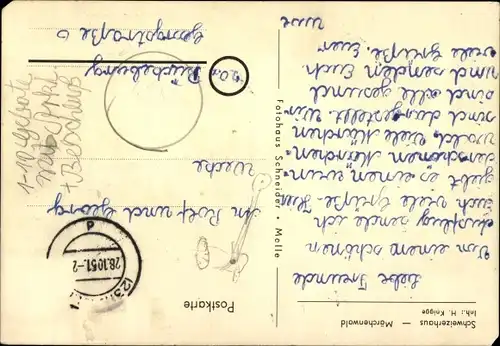 Schweizerhaus — Märchenwald
Inh.: H. Knigge
Liebe Freunde
Von einem schönen
Ausflug sende ich
Euch viele Grüße. Hier
gibt es einen wun-
derschönen Märchen-
wald. Viele Märchen
sind dargestellt. Wir
sind alle gesund
und senden Euch
viele Grüße. Euer
Fotohaus Schneider • Melle
Postkarte
28.10.51.-2
An Rolf und Georg
20a Bückeburg
Georgstraße
1-10